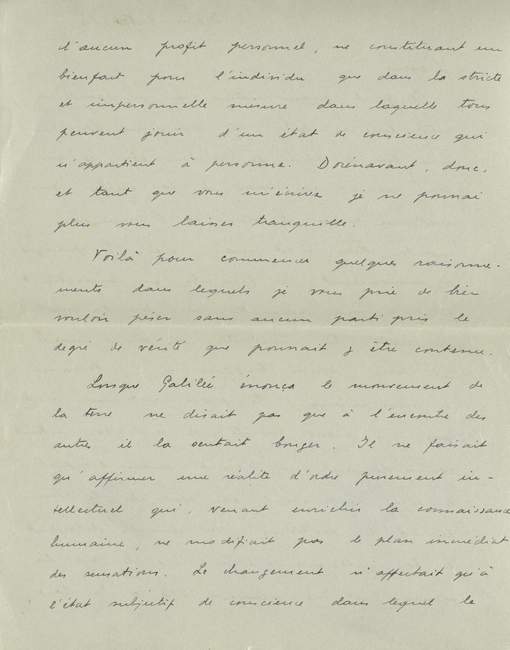 d'aucun profit personnel, ne constituant un
bienfait pour l'individu que dans la stricte
et impersonnelle mesure dans laquelle tous
peuvent jouir d'un état de conscience qui
n'appartient à personne. Dorénavant, donc,
et tant que vous m'écrirez je ne pourrai
plus vous laisser tranquille.
Voilà pour commencer quelques raisonne-
ments dans lesquels je vous prie de bien
vouloir peser sans aucun parti pris le
degré de vérité que pourrait y être contenue.
Lorsque Galilée énonça le mouvement de
la terre ne disait pas que à l'encontre des
autres il la sentait bouger. Il ne faisait
qu'affirmer une réalité d'ordre purement in-
tellectuel qui, venant enrichir la connaissance
humaine, ne modifiait pas le plan immédiat
des sensations. Le changement n'affectait qu'à
l'état subjectif de conscience dans lequel le